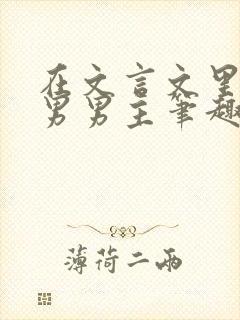 在文言文里
男男主笔趣
薄荷二两